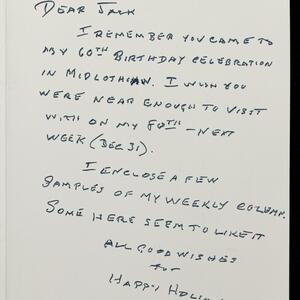 DEAR JACK
I REMEMBER YOU CAME TO
MY 60TH BIRTHDAY CELEBRATION
IN MIDLOTHIAN. I WISH YOU
WERE NEAR ENOUGH TO VISIT
WITH ON MY 80TH — NEXT
WEEK (DEC 31).
I ENCLOSE A FEW
SAMPLES OF MY WEEKLY COLUMN.
SOME HERE SEEM TO LIKE IT
ALL GOOD WISHES
for
HAPPY